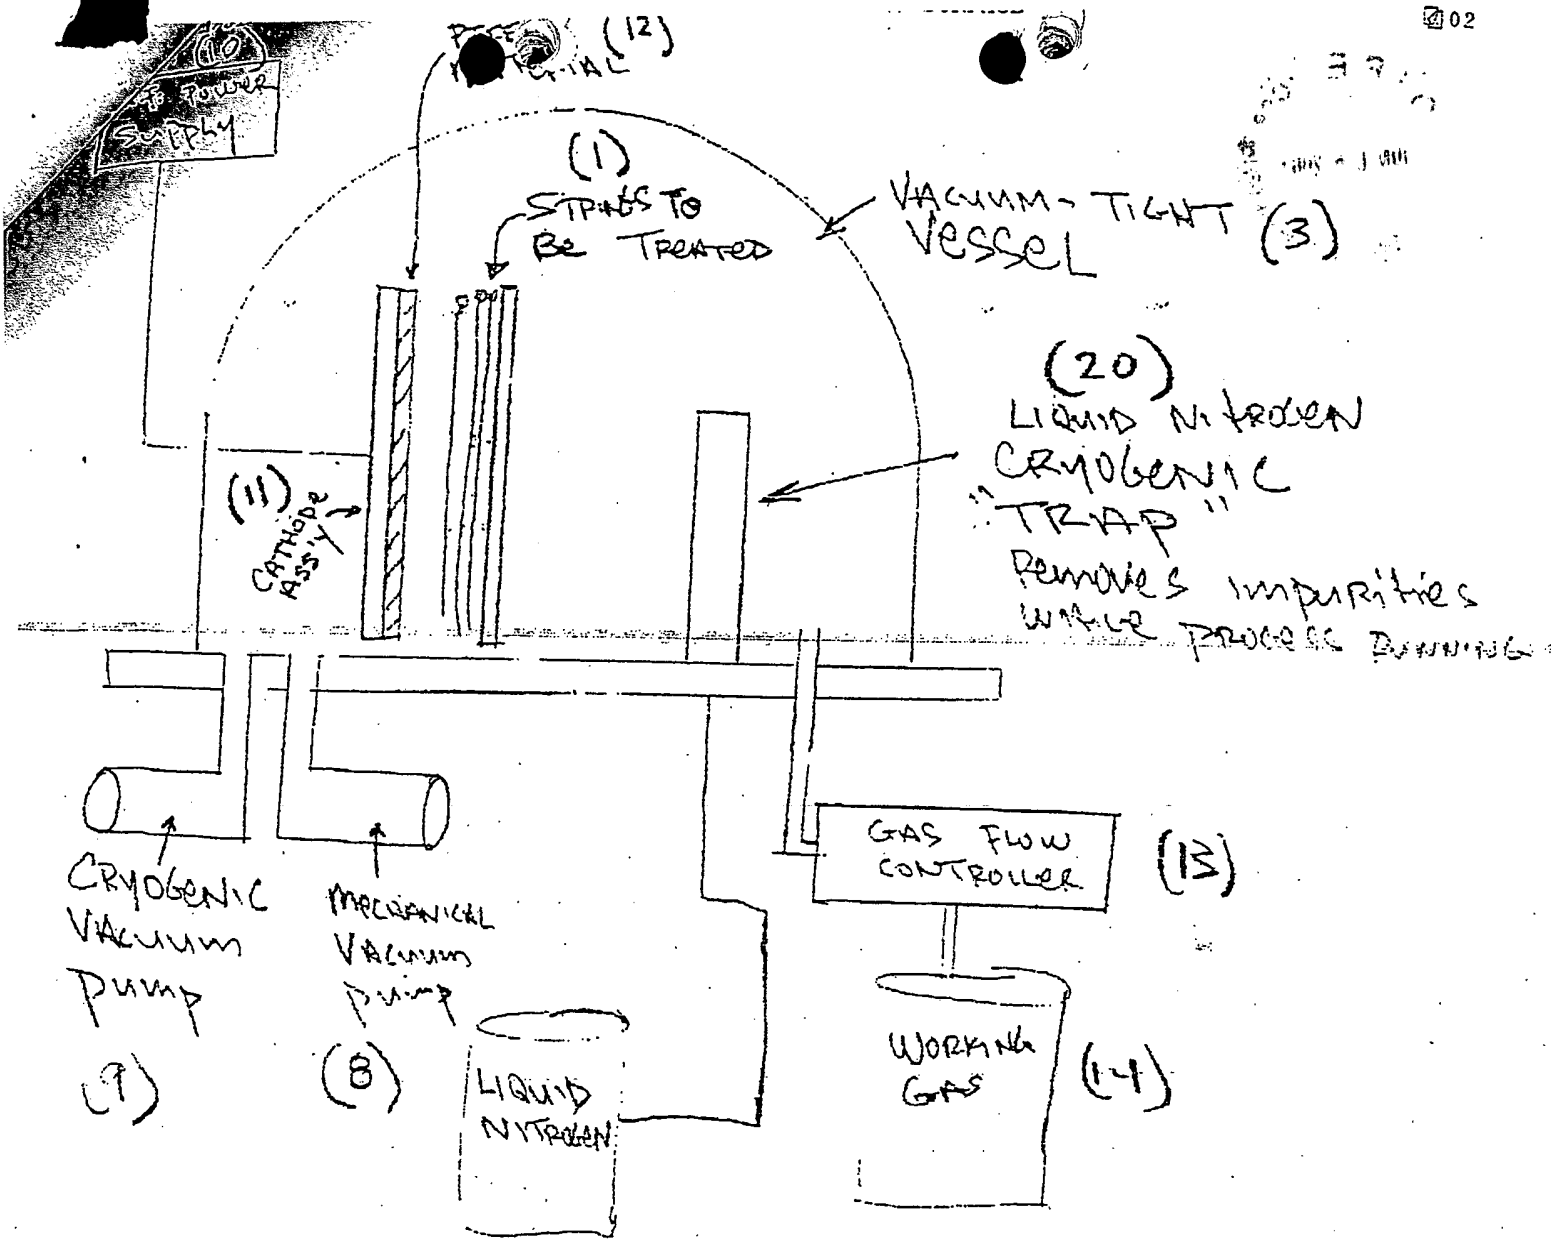 02
(10)
To Power
Supply
(12)
(1)
STRINGS TO
Be TREATED
VACUUM-TIGHT
VESSEL
(3)
(20)
LIQUID NITROGEN
CRYOGENIC
"TRAP"
Removes impurities
WHILE PROCESS RUNNING
(11)
CATHODE
ASS'Y
GAS FLOW
CONTROLLER
(13)
CRYOGENIC
VACUUM
pump
(9)
MECHANICAL
VACUUM
pump
(8)
LIQUID
NITROGEN
WORKING
GAS
(14)